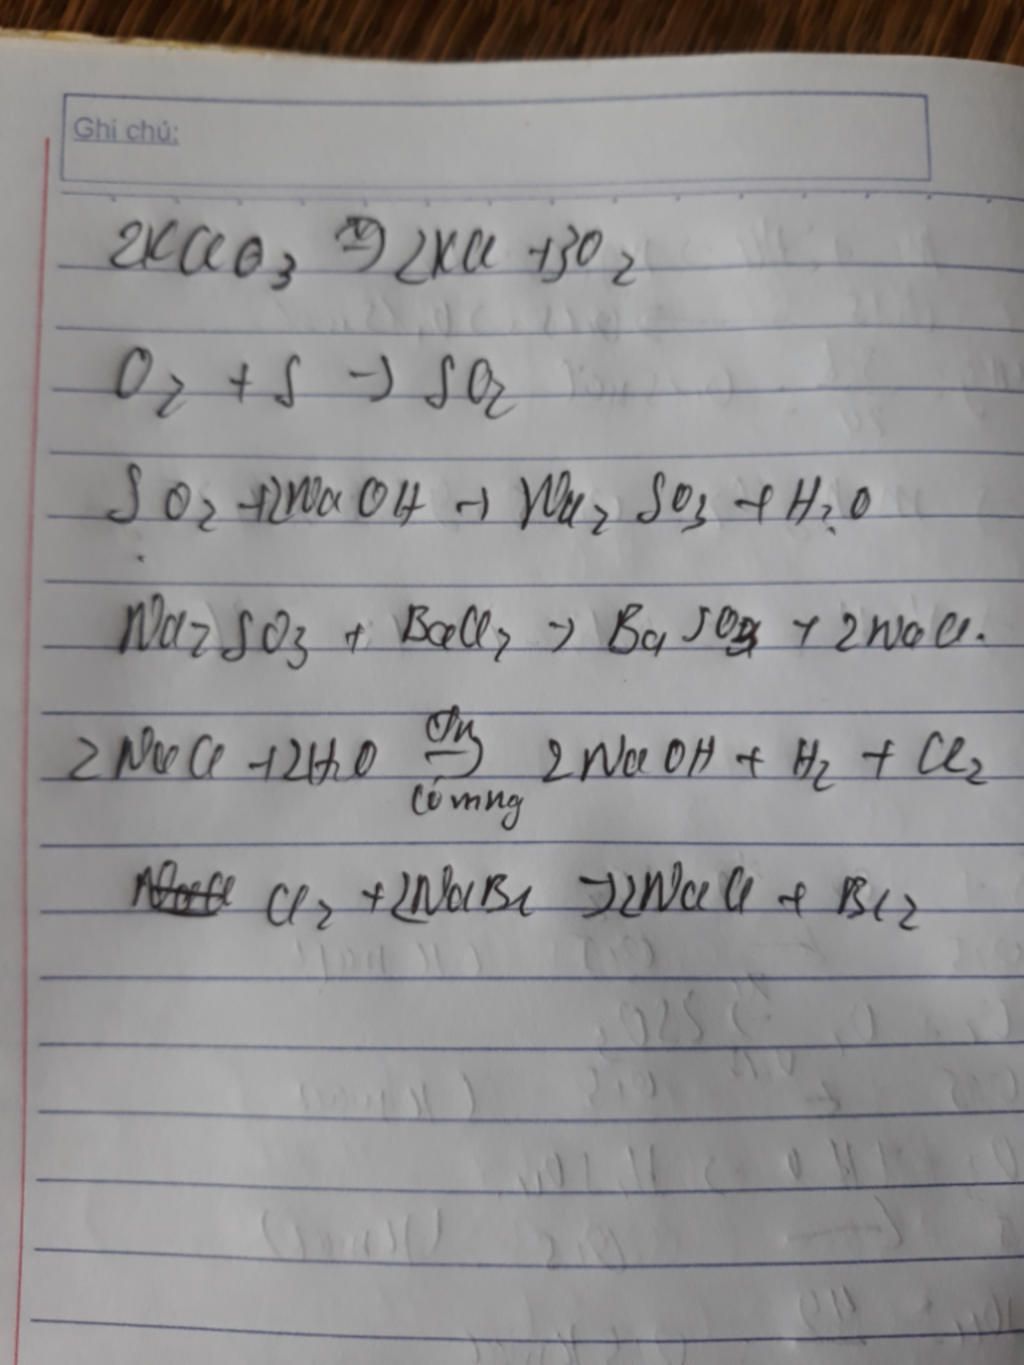 Ghi chú:
2KClO3 t° → 2KCl + 3O2
O2 + S → SO2
SO2 + 2NaOH → Na2SO3 + H2O
Na2SO3 + BaCl2 → BaSO3 + 2NaCl.
2NaCl + 2H2O đpdd → có mng 2NaOH + H2 + Cl2
Cl2 + 2NaBr → 2NaCl + Br2